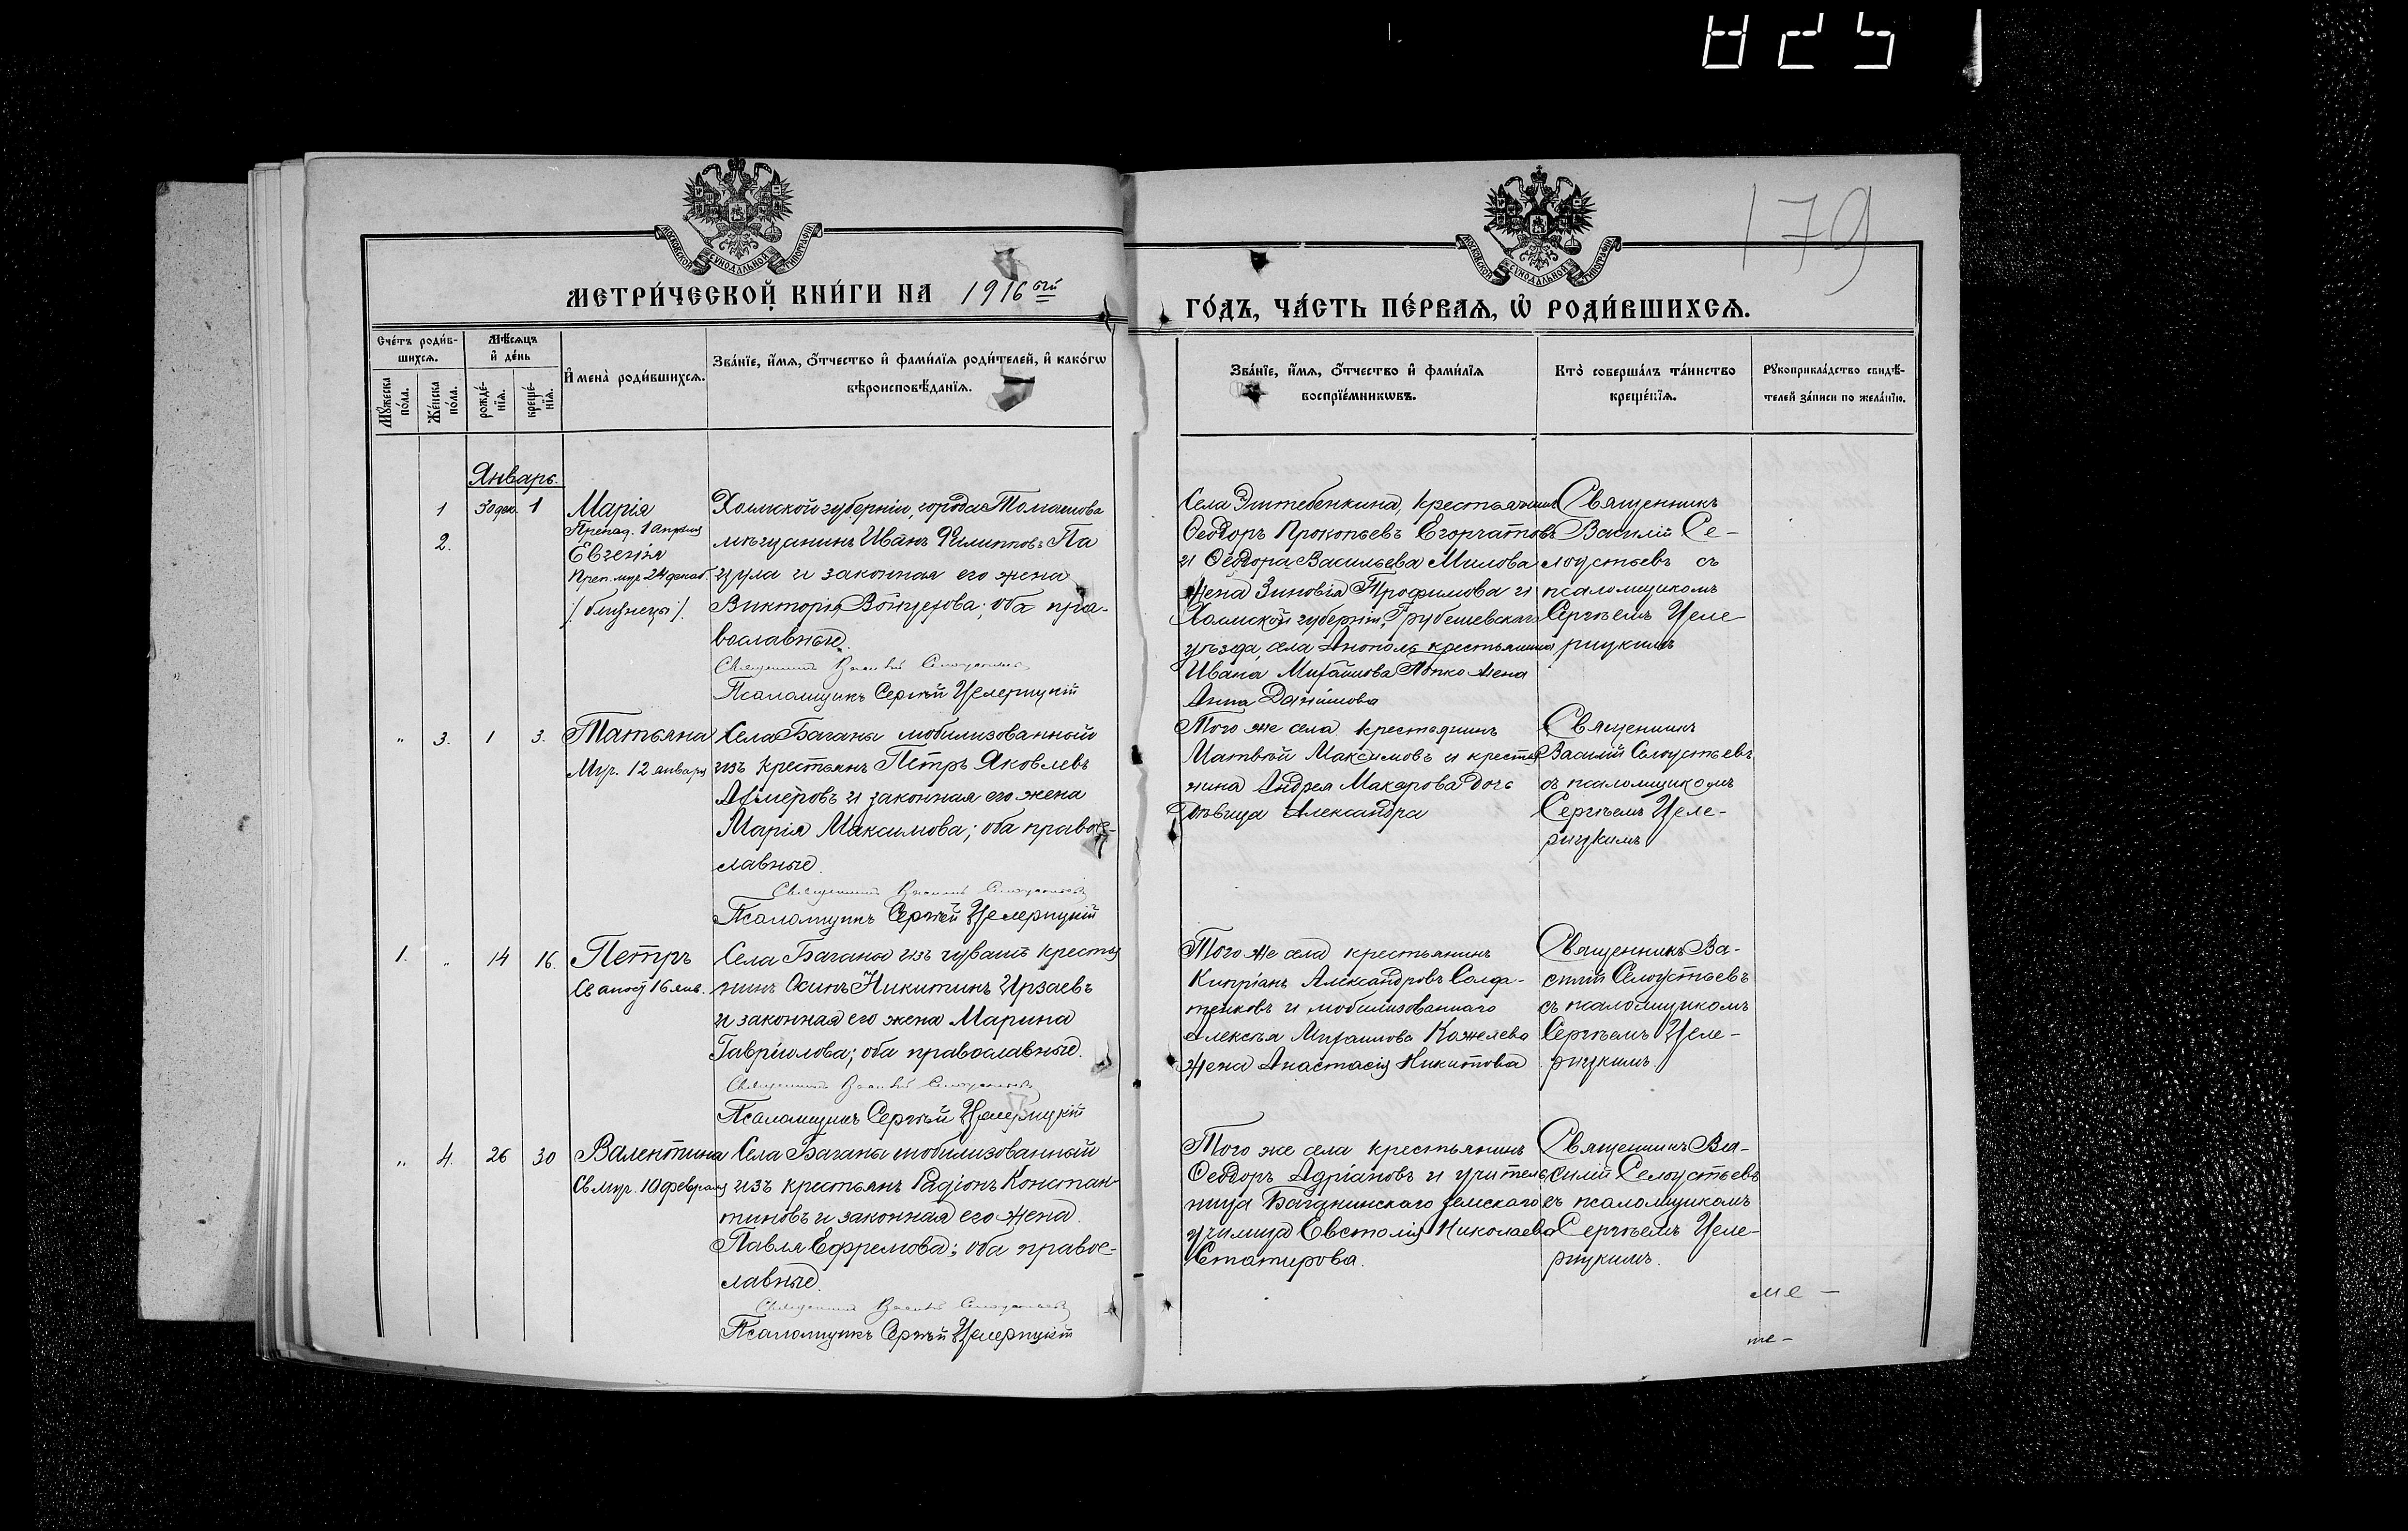 179
МЕТРИ́ЧЕСКОЙ КНИ́ГИ НА 1916 ый
ГО́ДЪ, ЧА́СТЬ ПЕ́РВАѦ, Ѡ҆ РОДИ́ВШИХСѦ.
Сче́тъ роди́в-
шихсѧ.
Мꙋ́жеска по́ла.
Же́нска по́ла.
Мѣ́сѧцъ и҆ де́нь
рожде́-нїѧ.
креще́-нїѧ.
И҆мена̀ роди́вшихсѧ.
Зва́нїе, и҆́мѧ, ѻ҆́тчество и҆ фами́лїѧ роди́телей, и҆ како́гѡ
вѣроисповѣ́данїѧ.
Зва́нїе, и҆́мѧ, ѻ҆́тчество и҆ фами́лїѧ
воспрїе́мникѡвъ.
Кто̀ соверша́лъ та́инство
креще́нїѧ.
Рꙋкоприкла́дство свидѣ́-
телей за́писи по жела́нїю.
Январь.
1 30 дек. 1
2.
Марія
Препод. 1 апрѣля
Евгенія
Преп. муч. 24 декаб.
/близнецы/.
Холмской губерніи, города Томашова
мѣщанинъ Иванъ Филипповъ Па
цула и законная его жена
Викторія Войцехова; оба пра-
вославные.
Священникъ Василій Селоустьевъ
Псаломщикъ Сергѣй Целерицкій
Села Эштебенкина, крестьянинъ
Ѳеодоръ Прокопьевъ Егорчатовъ
и Ѳеодора Васильева Милова
жена Зиновія Трофимова и
Холмской губерніи, Грубешевскаго
уѣзда, села Анополь крестьянина
Ивана Михайлова Попко жена
Анна Даниилова
Священникъ
Василій Се-
лоустьевъ съ
псаломщикомъ
Сергѣемъ Целе-
рицкимъ
" 3. 1 3.
Татьяна
Муч. 12 января
Села Баганы мобилизованный
изъ крестьянъ Петръ Яковлевъ
и законная его жена
Марія Максимова; оба право-
славные.
Священникъ Василій Селоустьевъ
Псаломщикъ Сергѣй Целерицкій
Того же села крестьянинъ
Матвѣй Максимовъ и крестья
нина Андрея Макарова дочь
дѣвица Александра
Священникъ
Василій Селоустьевъ
съ псаломщикомъ
Сергѣемъ Целе-
рицкимъ
1. " 14 16.
Петръ
Св апос 16 янв.
Села Баганы изъ чувашъ крестья
нинъ Осипъ Никитинъ Ирзаевъ
и законная его жена Марина
Гавріилова; оба православные.
Священникъ Василій Селоустьевъ
Псаломщикъ Сергѣй Целерицкій
Того же села крестьянинъ
Кипріанъ Александровъ Солда-
тенковъ и мобилизованнаго
Алексѣя Михаилова Кожелева
жена Анастасія Никитова
Священникъ Ва-
силій Селоустьевъ
съ псаломщикомъ
Сергѣемъ Целе-
рицкимъ
" 4. 26 30
Валентина
Св муч. 10 февраля
Села Баганы мобилизованный
изъ крестьянъ Радіонъ Констан-
тиновъ и законная его жена
Павля Ефремова; оба право-
славные.
Священникъ Василій Селоустьевъ
Псаломщикъ Сергѣй Целерицкій
Того же села крестьянинъ
Ѳеодоръ Адріановъ и учитель
ница Баганинскаго земскаго
училища Евстолія Николаева
Статирова.
Священникъ Ва-
силій Селоустьевъ
съ псаломщикомъ
Сергѣемъ Целе-
рицкимъ.